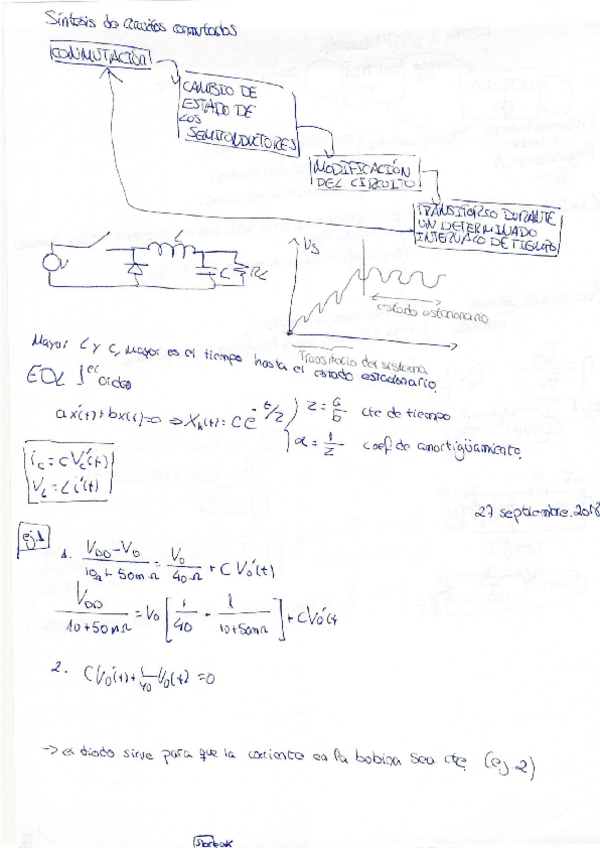 Síntesis de circuitos conmutados
CONMUTACIÓN
CAMBIO DE
ESTADO DE
LOS
SEMICONDUCTORES
MODIFICACIÓN
DEL CIRCUITO
TRANSITORIO DURANTE
UN DETERMINADO
INTERVALO DE TIEMPO
V
L
C
RL
Vs
estado estacionario
Transitorio del sistema
Mayor L y C, mayor es el tiempo hasta el estado estacionario.
EDL 1er orden
ax'(t)+bx(t)=0 ⇒ Xh(t)= C e^-t/z } z = a/b cte de tiempo
α = 1/z coef. de amortigüamiento.
ic = C Vc'(t)
VL = L i'(t)
27 septiembre.2018
ej.1
1. (VDD - V0)/(10Ω + 50mΩ) = V0/(40Ω) + C V0'(t)
VDD/(10+50mΩ) = V0 [1/40 + 1/(10+50mΩ)] + CV0'(t
2. C V0'(t) + 1/40 V0(t) = 0
→ el diodo sirve para que la corriente en la bobina sea cte. (ej 2)